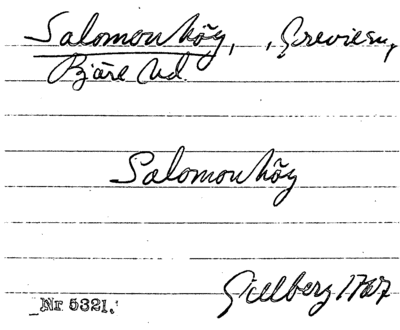 Salomonhög, , Greviesn,
Bjäre hd
Salomonhög
Gillberg 1767
Nr 5321.